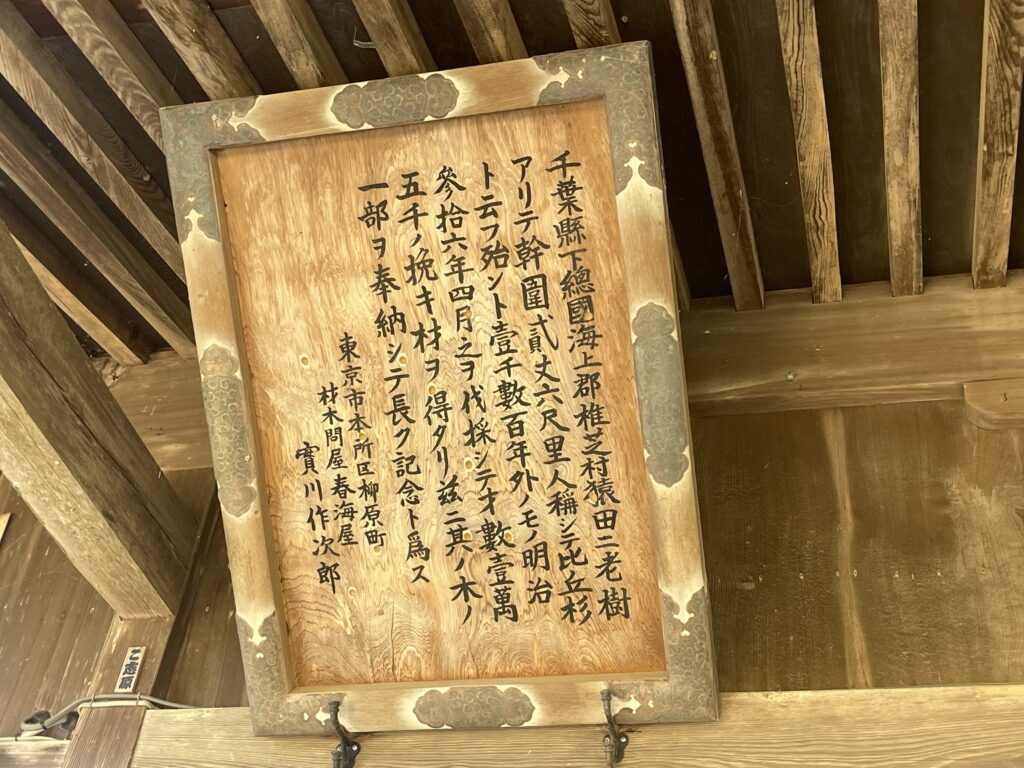 千葉縣下總國海上郡椎芝村猿田ニ老樹
アリテ幹圍貳丈六尺里人稱シテ比丘杉
ト云フ殆ント壹千數百年外ノモノ明治
參拾六年四月之ヲ伐採シテオ數壹萬
五千ノ挽キ材ヲ得タリ茲ニ其ノ木ノ
一部ヲ奉納シテ長ク記念ト爲ス
東京市本所区柳原町
材木問屋春海屋
實川作次郎